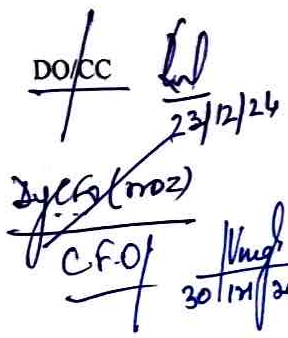 DO/CC
23/12/24
DyCFO (NDZ)
CFO/
30/12/2